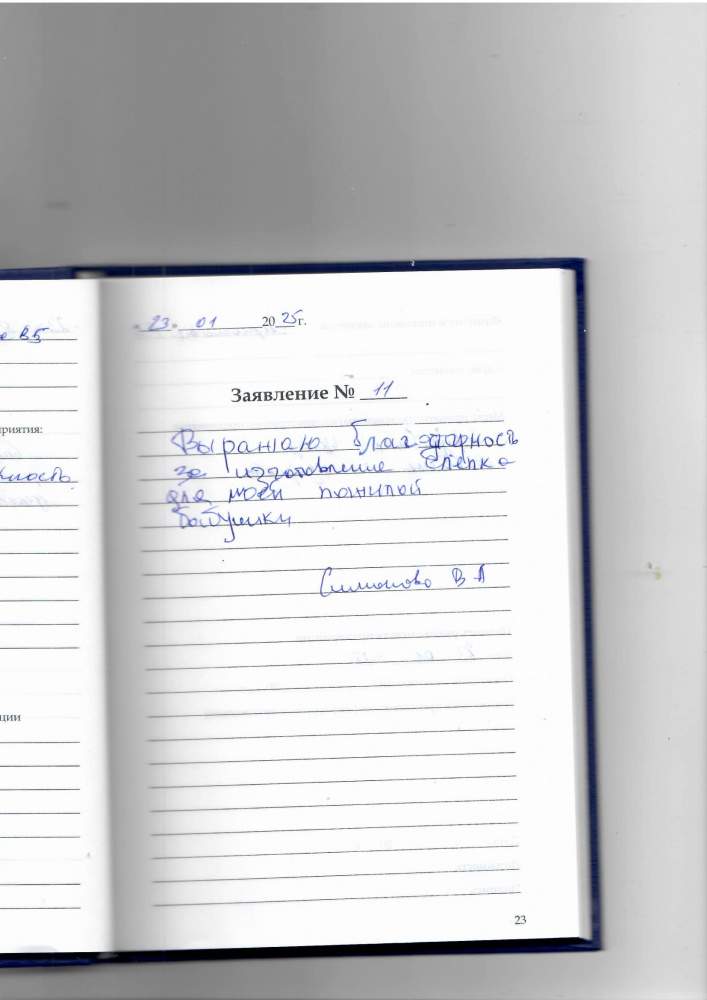 "23" 01 2025г.
Заявление № 11
Выражаю благодарность
за изготовление слепка
для моей пожилой
бабушки
Симонова В А
приятия:
ции
23